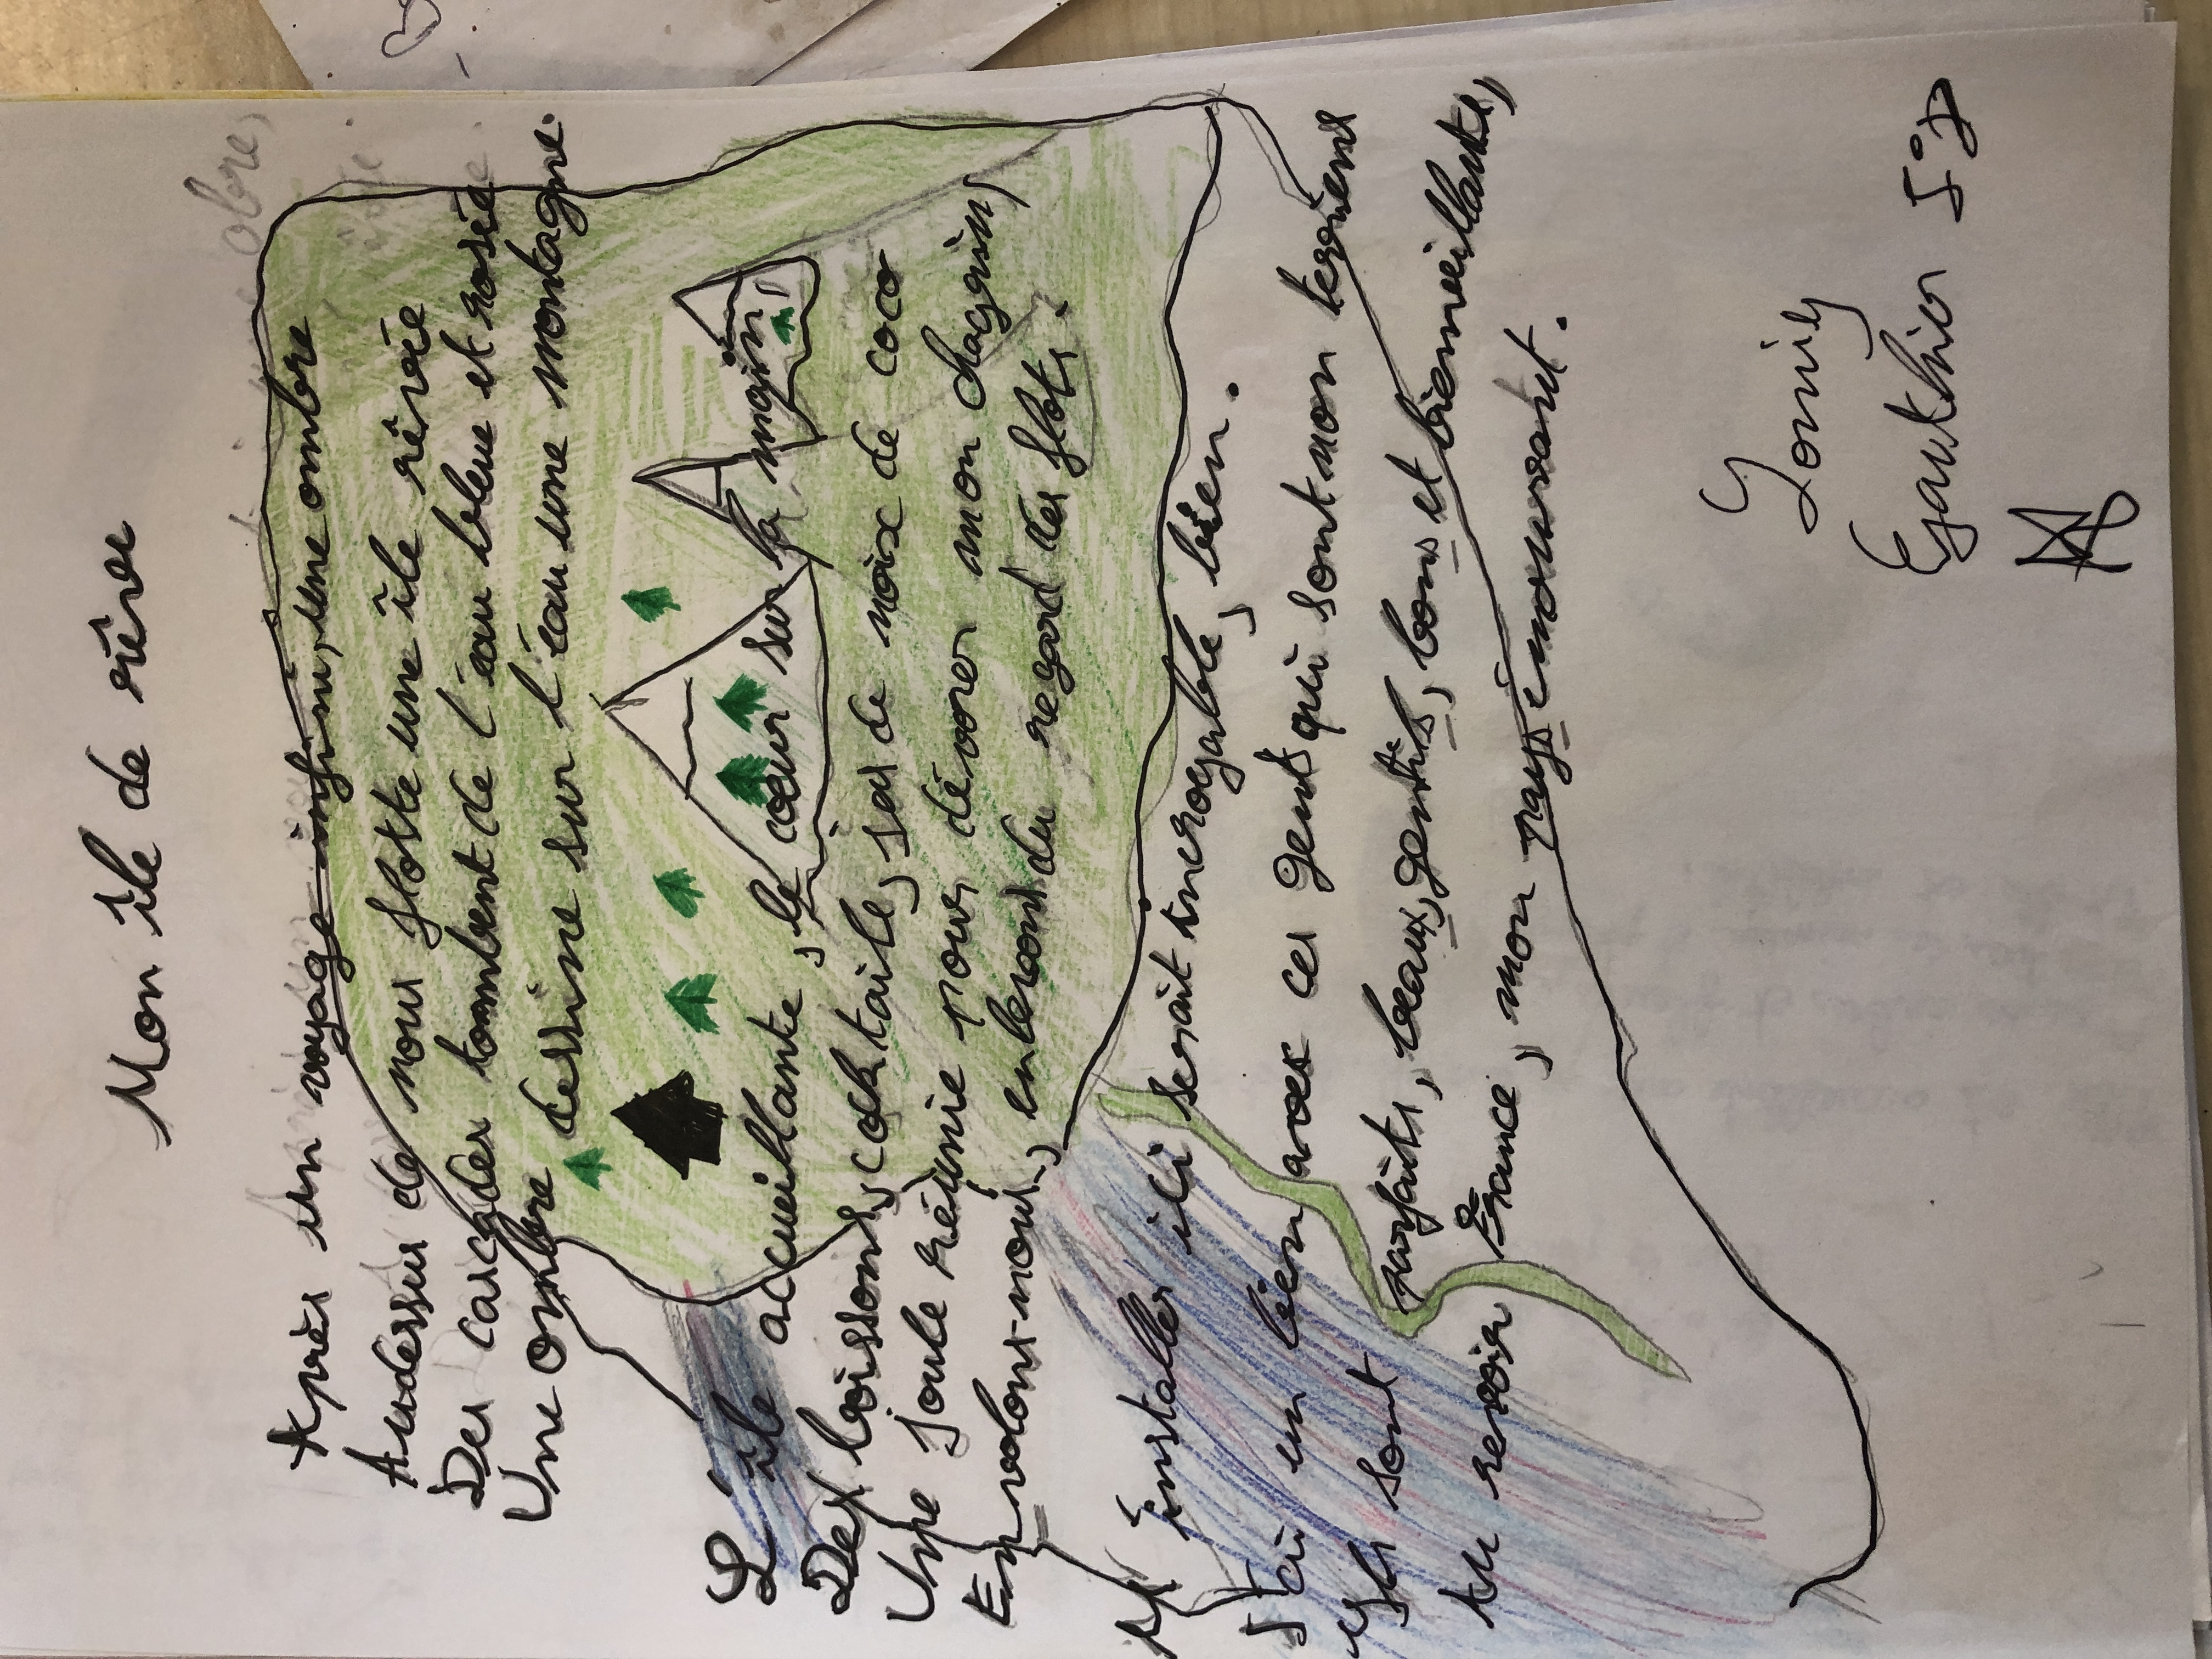 Mon île de rêve
Après un voyage infini, une ombre
Audessus de nous flotte une île rêvée
Des cascades tombent de l'eau bleu et rosée
Une ombre dessine sur l'eau une montagne.
L'île accueillante, le cœur sur la main,
Des boissons, cocktails, jus de noix de coco
Une foule réunie pour dévorer mon chagrin,
Envolons-nous, entesons du regard des flots.
M'installer ici serait incroyable, bien.
J'ai un lien avec ces gents qui sont mon terriens
Ils sont parfaits, beaux, gentils, bons et bienveillants,
Au revoir France, mon pays émouvant.
Gauthier 5°D